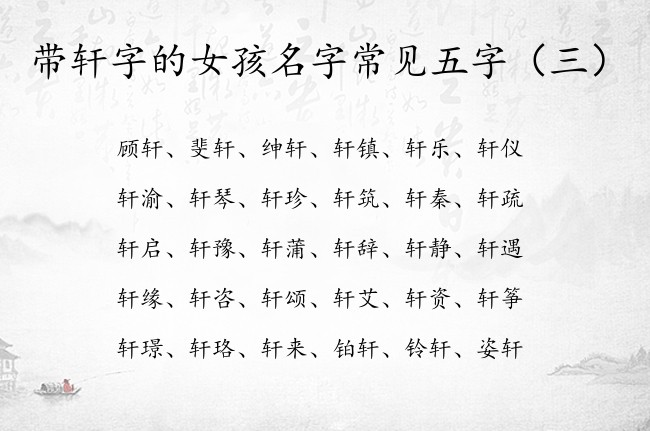 带轩字的女孩名字常见五字（三）
顾轩、斐轩、绅轩、轩镇、轩乐、轩仪
轩渝、轩琴、轩珍、轩筑、轩秦、轩疏
轩启、轩豫、轩蒲、轩辞、轩静、轩遇
轩缘、轩咨、轩颂、轩艾、轩资、轩筝
轩璟、轩珞、轩来、铂轩、铃轩、姿轩